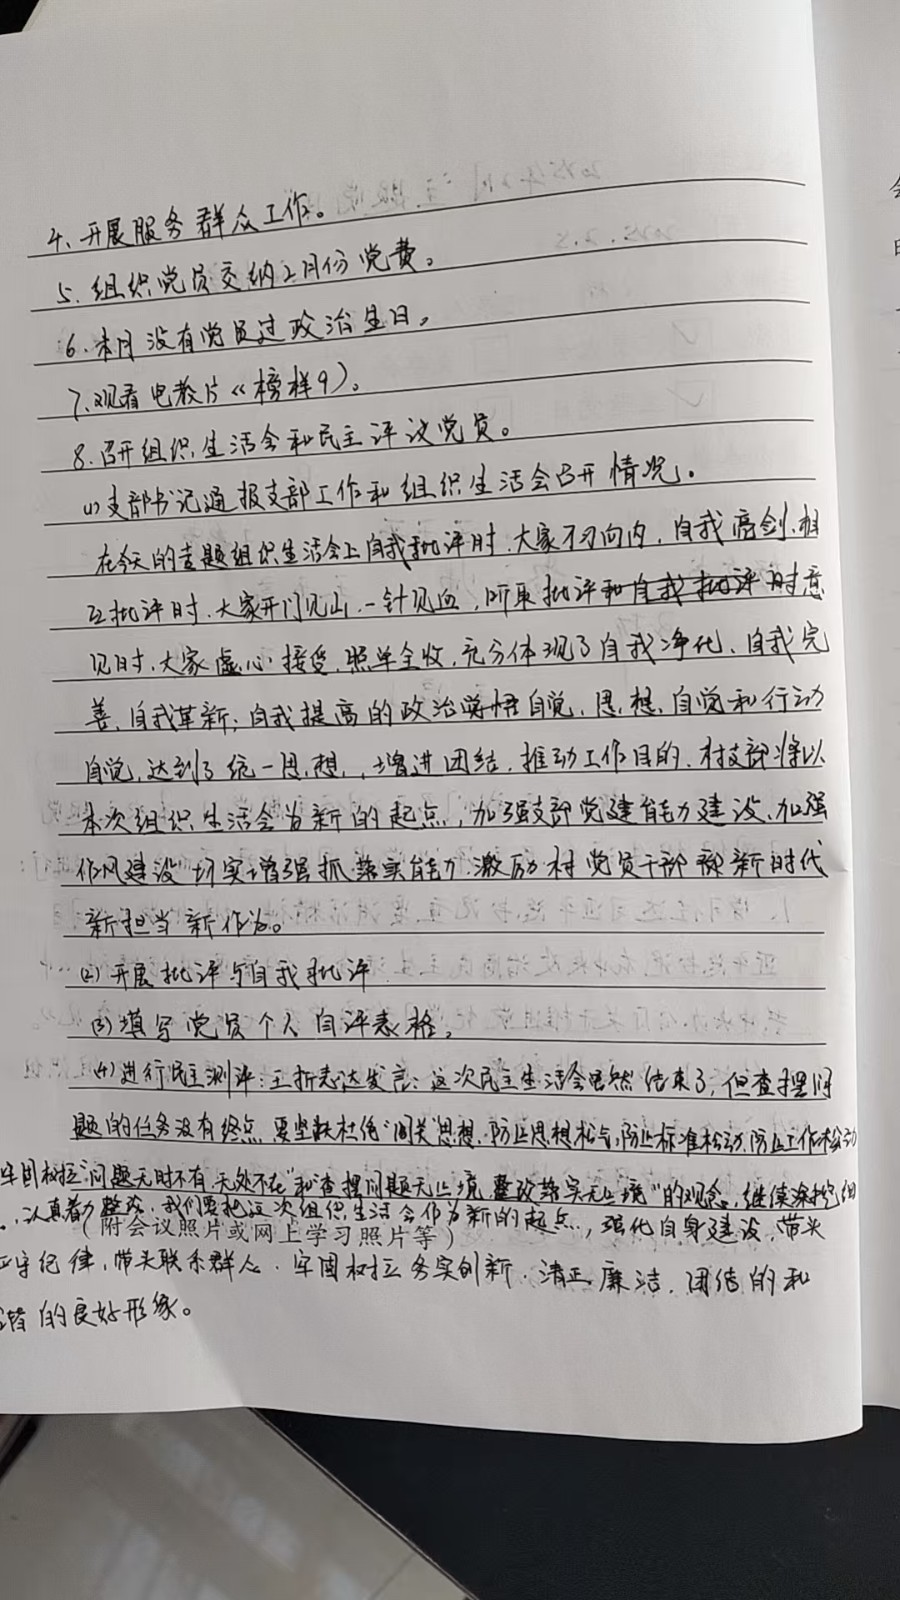 4、开展服务群众工作。
5、组织党员交纳2月份党费。
6、本月没有党员过政治生日。
7、观看电教片《榜样9》。
8、召开组织生活会和民主评议党员。
(1)支部书记通报支部工作和组织生活会召开情况。
在今天的专题组织生活会上自我批评时，大家刀刃向内，自我亮剑，相
互批评时，大家开门见山，一针见血，听取批评和自我批评时意
见时，大家虚心接受，照单全收，充分体现了自我净化、自我完
善、自我革新、自我提高的政治觉悟自觉、思想自觉和行动
自觉，达到了统一思想，增进团结，推动工作目的，村支部将以
本次组织生活会为新的起点，加强支部党建能力建设，加强
作风建设，切实增强抓落实能力，激励村党员干部 新时代
新担当新作为。
(2)开展批评与自我批评
(3)填写党员个人自评表格。
(4)进行民主测评：王折志达发言：这次民主生活会虽然结束了，但查摆问
题的任务没有终点，要坚决杜绝“闯关”思想，防止思想松气，防止标准松动，防止工作松动
牢固树立“问题无时不有、无处不在”和“查摆问题无止境、整改落实无止境”的观念，继续深挖细
，认真着力整改，我们要把这次组织生活会作为新的起点，强化自身建设，带头
（附会议照片或网上学习照片等）
守纪律，带头联系群众，牢固树立务实创新、清正廉洁、团结的和
谐的良好形象。